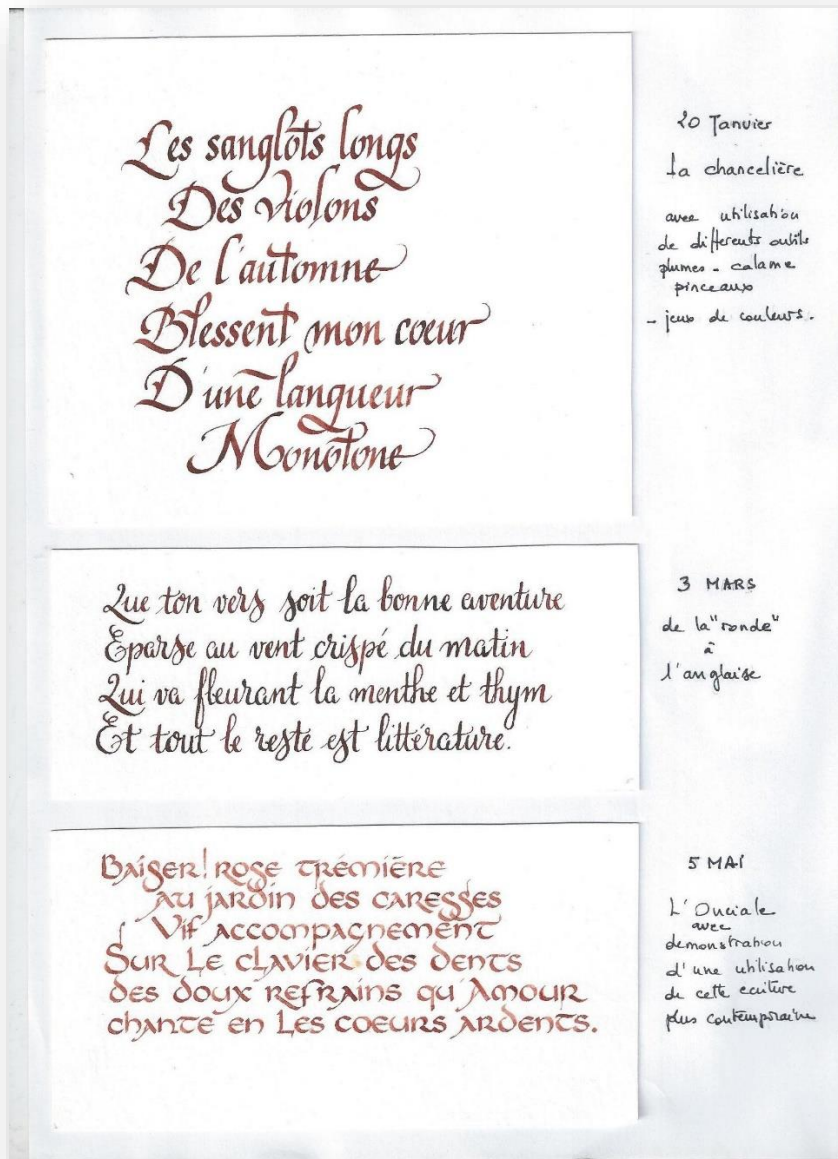 Les sanglots longs
Des violons
De l'automne
Blessent mon coeur
D'une langueur
Monotone
20 Janvier
La chancelière
avec utilisation
de differents outils
plumes - calame
pinceaux
- jeux de couleurs.
Que ton vers soit la bonne aventure
Eparse au vent crispé du matin
Qui va fleurant la menthe et thym
Et tout le reste est littérature.
3 MARS
de la "ronde"
à
l'anglaise
Baiser! rose trémière
au jardin des caresses
Vif accompagnement
Sur le clavier des dents
des doux refrains qu'Amour
chante en les coeurs ardents.
5 MAI
L'Onciale
avec
demonstration
d'une utilisation
de cette ecriture
plus contemporaine